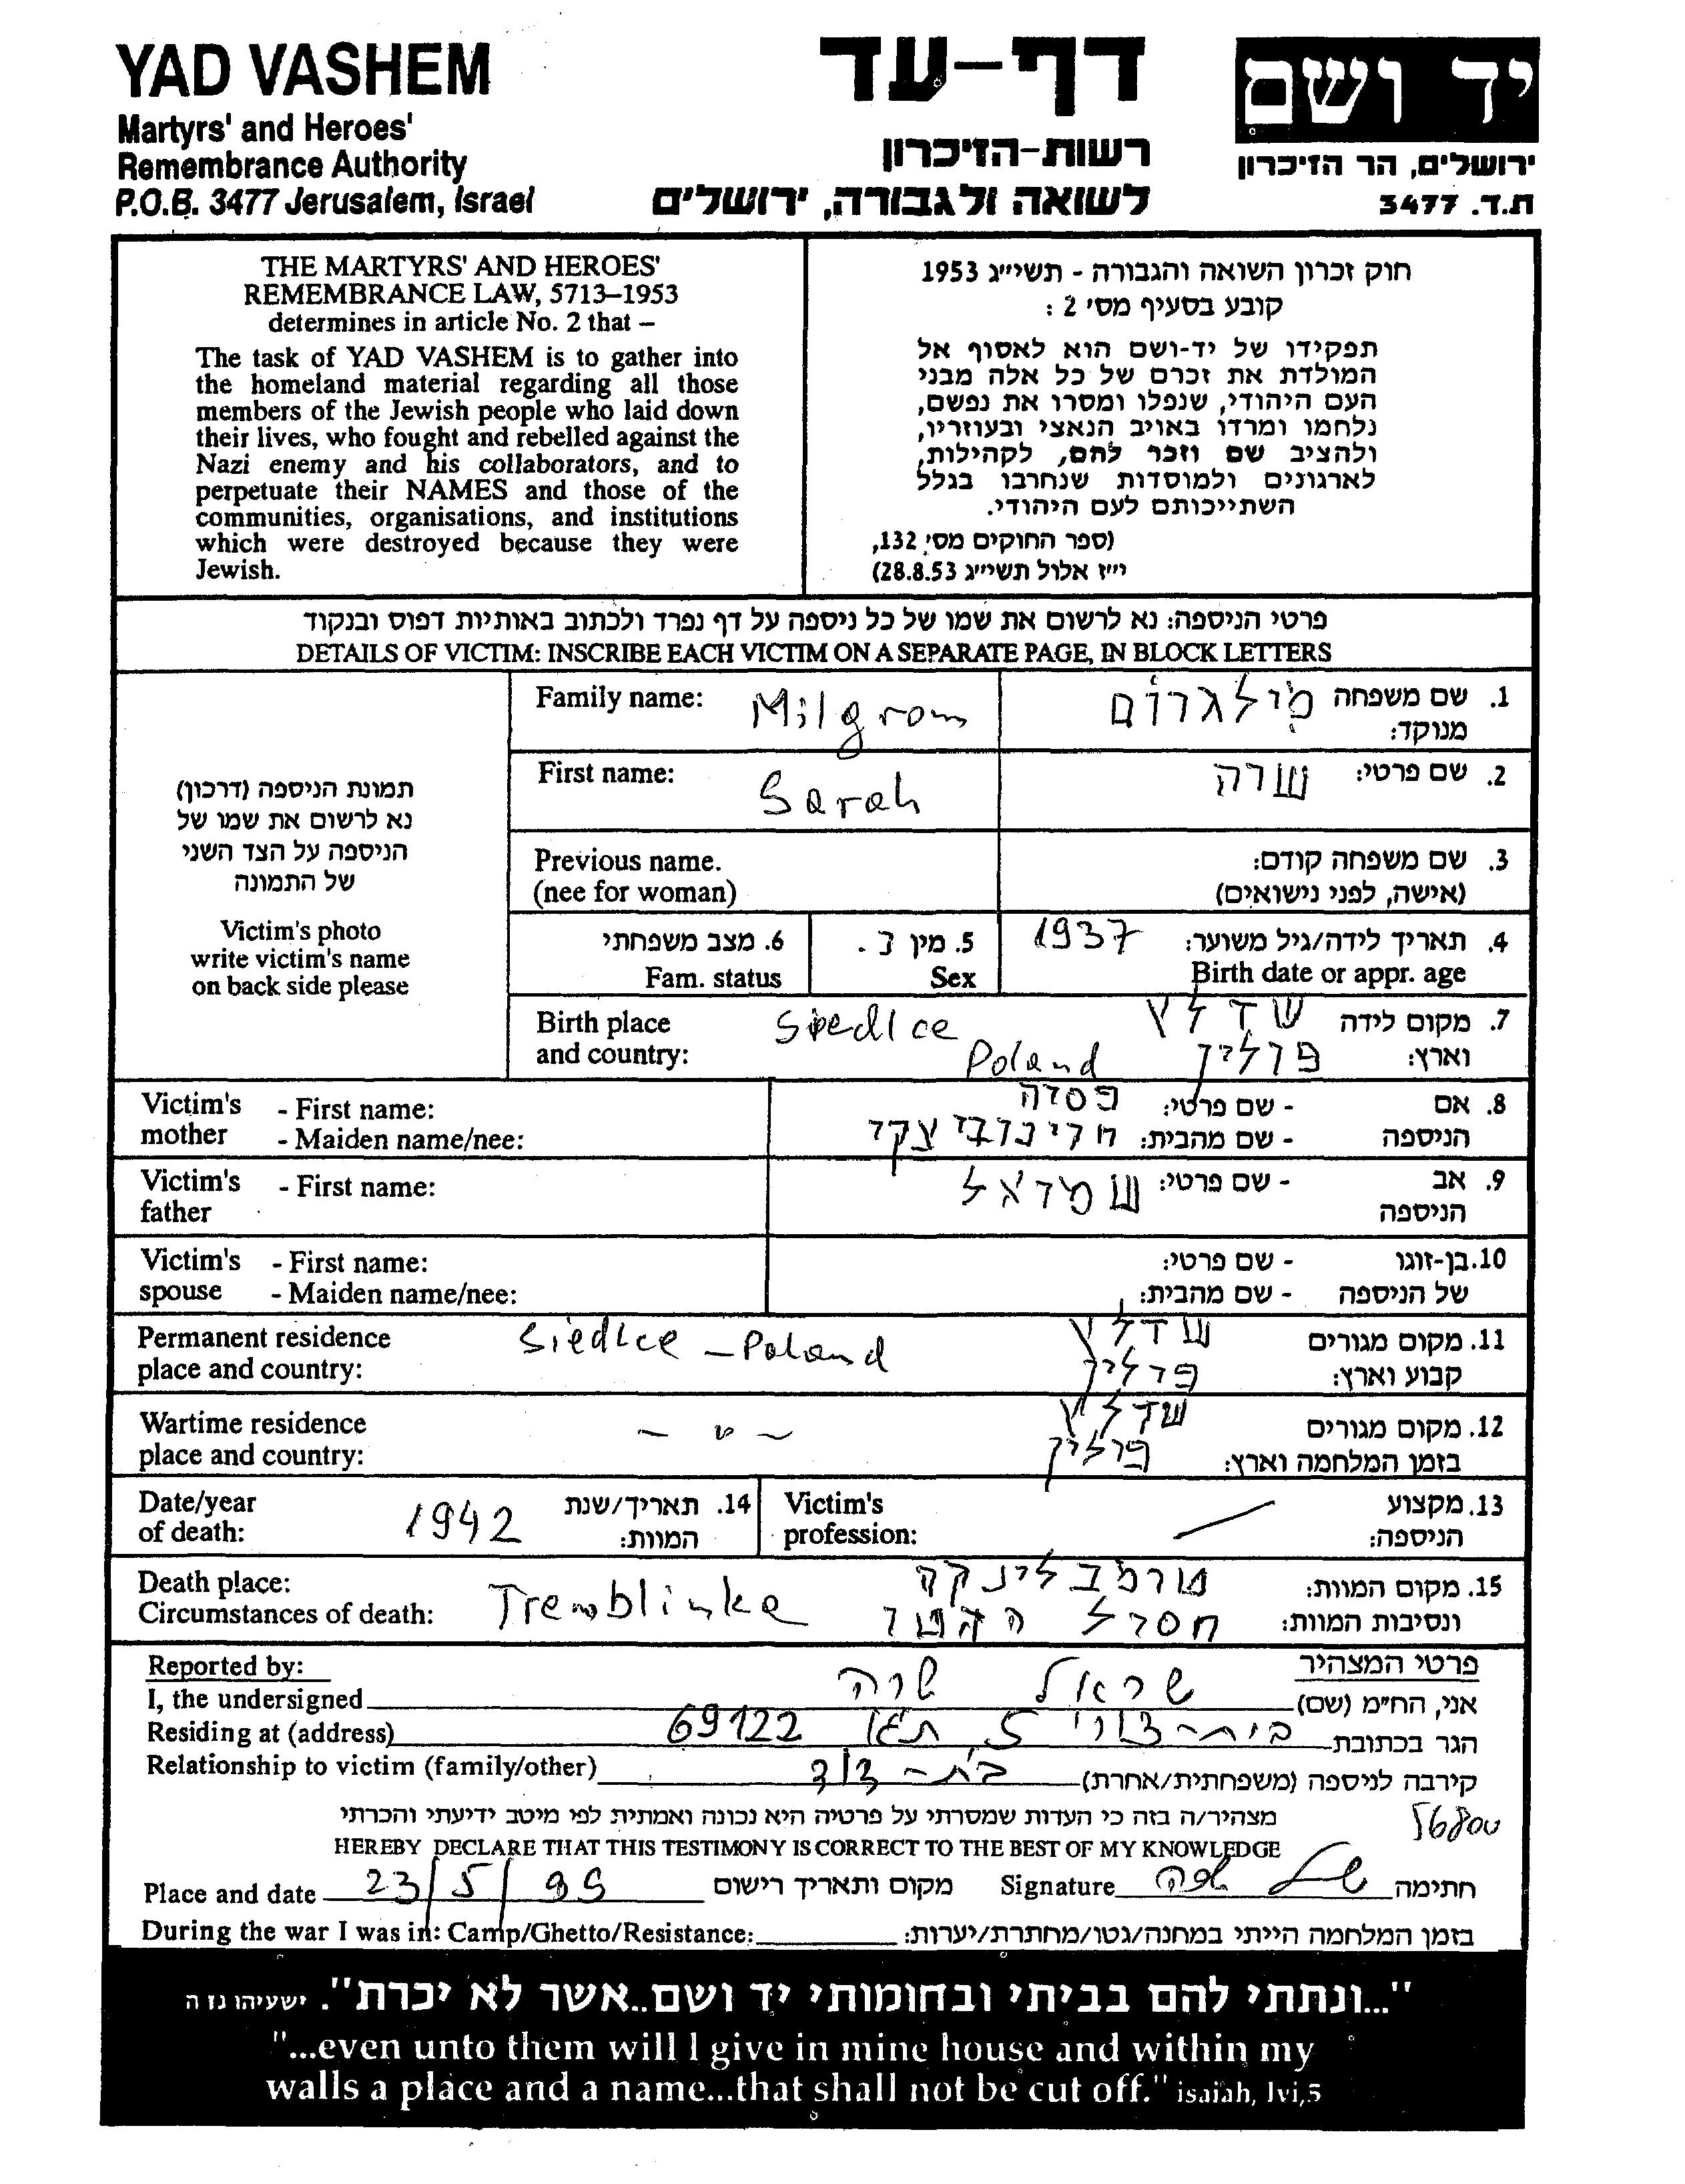 YAD VASHEM
Martyrs' and Heroes'
Remembrance Authority
P.O.B. 3477 Jerusalem, Israel
דף-עד
רשות-הזיכרון
לשואה ולגבורה, ירושלים
יד ושם
ירושלים, הר הזיכרון
ת.ד. 3477
THE MARTYRS' AND HEROES'
REMEMBRANCE LAW, 5713–1953
determines in article No. 2 that –
The task of YAD VASHEM is to gather into
the homeland material regarding all those
members of the Jewish people who laid down
their lives, who fought and rebelled against the
Nazi enemy and his collaborators, and to
perpetuate their NAMES and those of the
communities, organisations, and institutions
which were destroyed because they were
Jewish.
חוק זכרון השואה והגבורה - תשי"ג 1953
קובע בסעיף מס' 2 :
תפקידו של יד-ושם הוא לאסוף אל
המולדת את זכרם של כל אלה מבני
העם היהודי, שנפלו ומסרו את נפשם,
נלחמו ומרדו באויב הנאצי ובעוזריו,
ולהציב שם וזכר להם, לקהילות,
לארגונים ולמוסדות שנחרבו בגלל
השתייכותם לעם היהודי.
(ספר החוקים מס' 132,
י"ז אלול תשי"ג 28.8.53)
פרטי הניספה: נא לרשום את שמו של כל ניספה על דף נפרד ולכתוב באותיות דפוס ובנקוד
DETAILS OF VICTIM: INSCRIBE EACH VICTIM ON A SEPARATE PAGE, IN BLOCK LETTERS
תמונת הניספה (דרכון)
נא לרשום את שמו של
הניספה על הצד השני
של התמונה
Victim's photo
write victim's name
on back side please
Family name: Milgrom
1. שם משפחה מילגרום
מנוקד:
First name: Sarah
2. שם פרטי: שרה
Previous name.
(nee for woman)
3. שם משפחה קודם:
(אישה, לפני נישואים)
6. מצב משפחתי
Fam. status
5. מין נ.
Sex
4. תאריך לידה/גיל משוער: 1937
Birth date or appr. age
Birth place Siedlce
and country: Poland
7. מקום לידה שדלץ
וארץ: פולין
Victim's - First name:
mother - Maiden name/nee:
8. אם - שם פרטי:
הניספה - שם מהבית:
Victim's - First name:
father
9. אב - שם פרטי: שמואל
הניספה
Victim's - First name:
spouse - Maiden name/nee:
10. בן-זוגו - שם פרטי:
של הניספה - שם מהבית:
Permanent residence Siedlce – Poland
place and country:
11. מקום מגורים שדלץ
קבוע וארץ: פולין
Wartime residence – " –
place and country:
12. מקום מגורים שדלץ
בזמן המלחמה וארץ: פולין
Date/year
of death: 1942
14. תאריך/שנת
המוות:
Victim's
profession:
13. מקצוע
הניספה:
Death place:
Circumstances of death: Tremblinka
15. מקום המוות: טרמבלינקה
ונסיבות המוות: חסול הגטו
Reported by:
פרטי המצהיר
I, the undersigned אני, הח"מ (שם) שראל שרה
Residing at (address) הגר בכתובת בית-צורי 5 ת"א 69122
Relationship to victim (family/other) קירבה לניספה (משפחתית/אחרת) בת-דוד
מצהיר/ה בזה כי העדות שמסרתי על פרטיה היא נכונה ואמתית לפי מיטב ידיעתי והכרתי
56800
HEREBY DECLARE THAT THIS TESTIMONY IS CORRECT TO THE BEST OF MY KNOWLEDGE
Place and date 23/5/99 מקום ותאריך רישום Signature חתימה
During the war I was in: Camp/Ghetto/Resistance: בזמן המלחמה הייתי במחנה/גטו/מחתרת/יערות:
"...ונתתי להם בביתי ובחומותי יד ושם..אשר לא יכרת". ישעיהו נז ה
"...even unto them will I give in mine house and within my
walls a place and a name...that shall not be cut off." isaiah, lvi,5